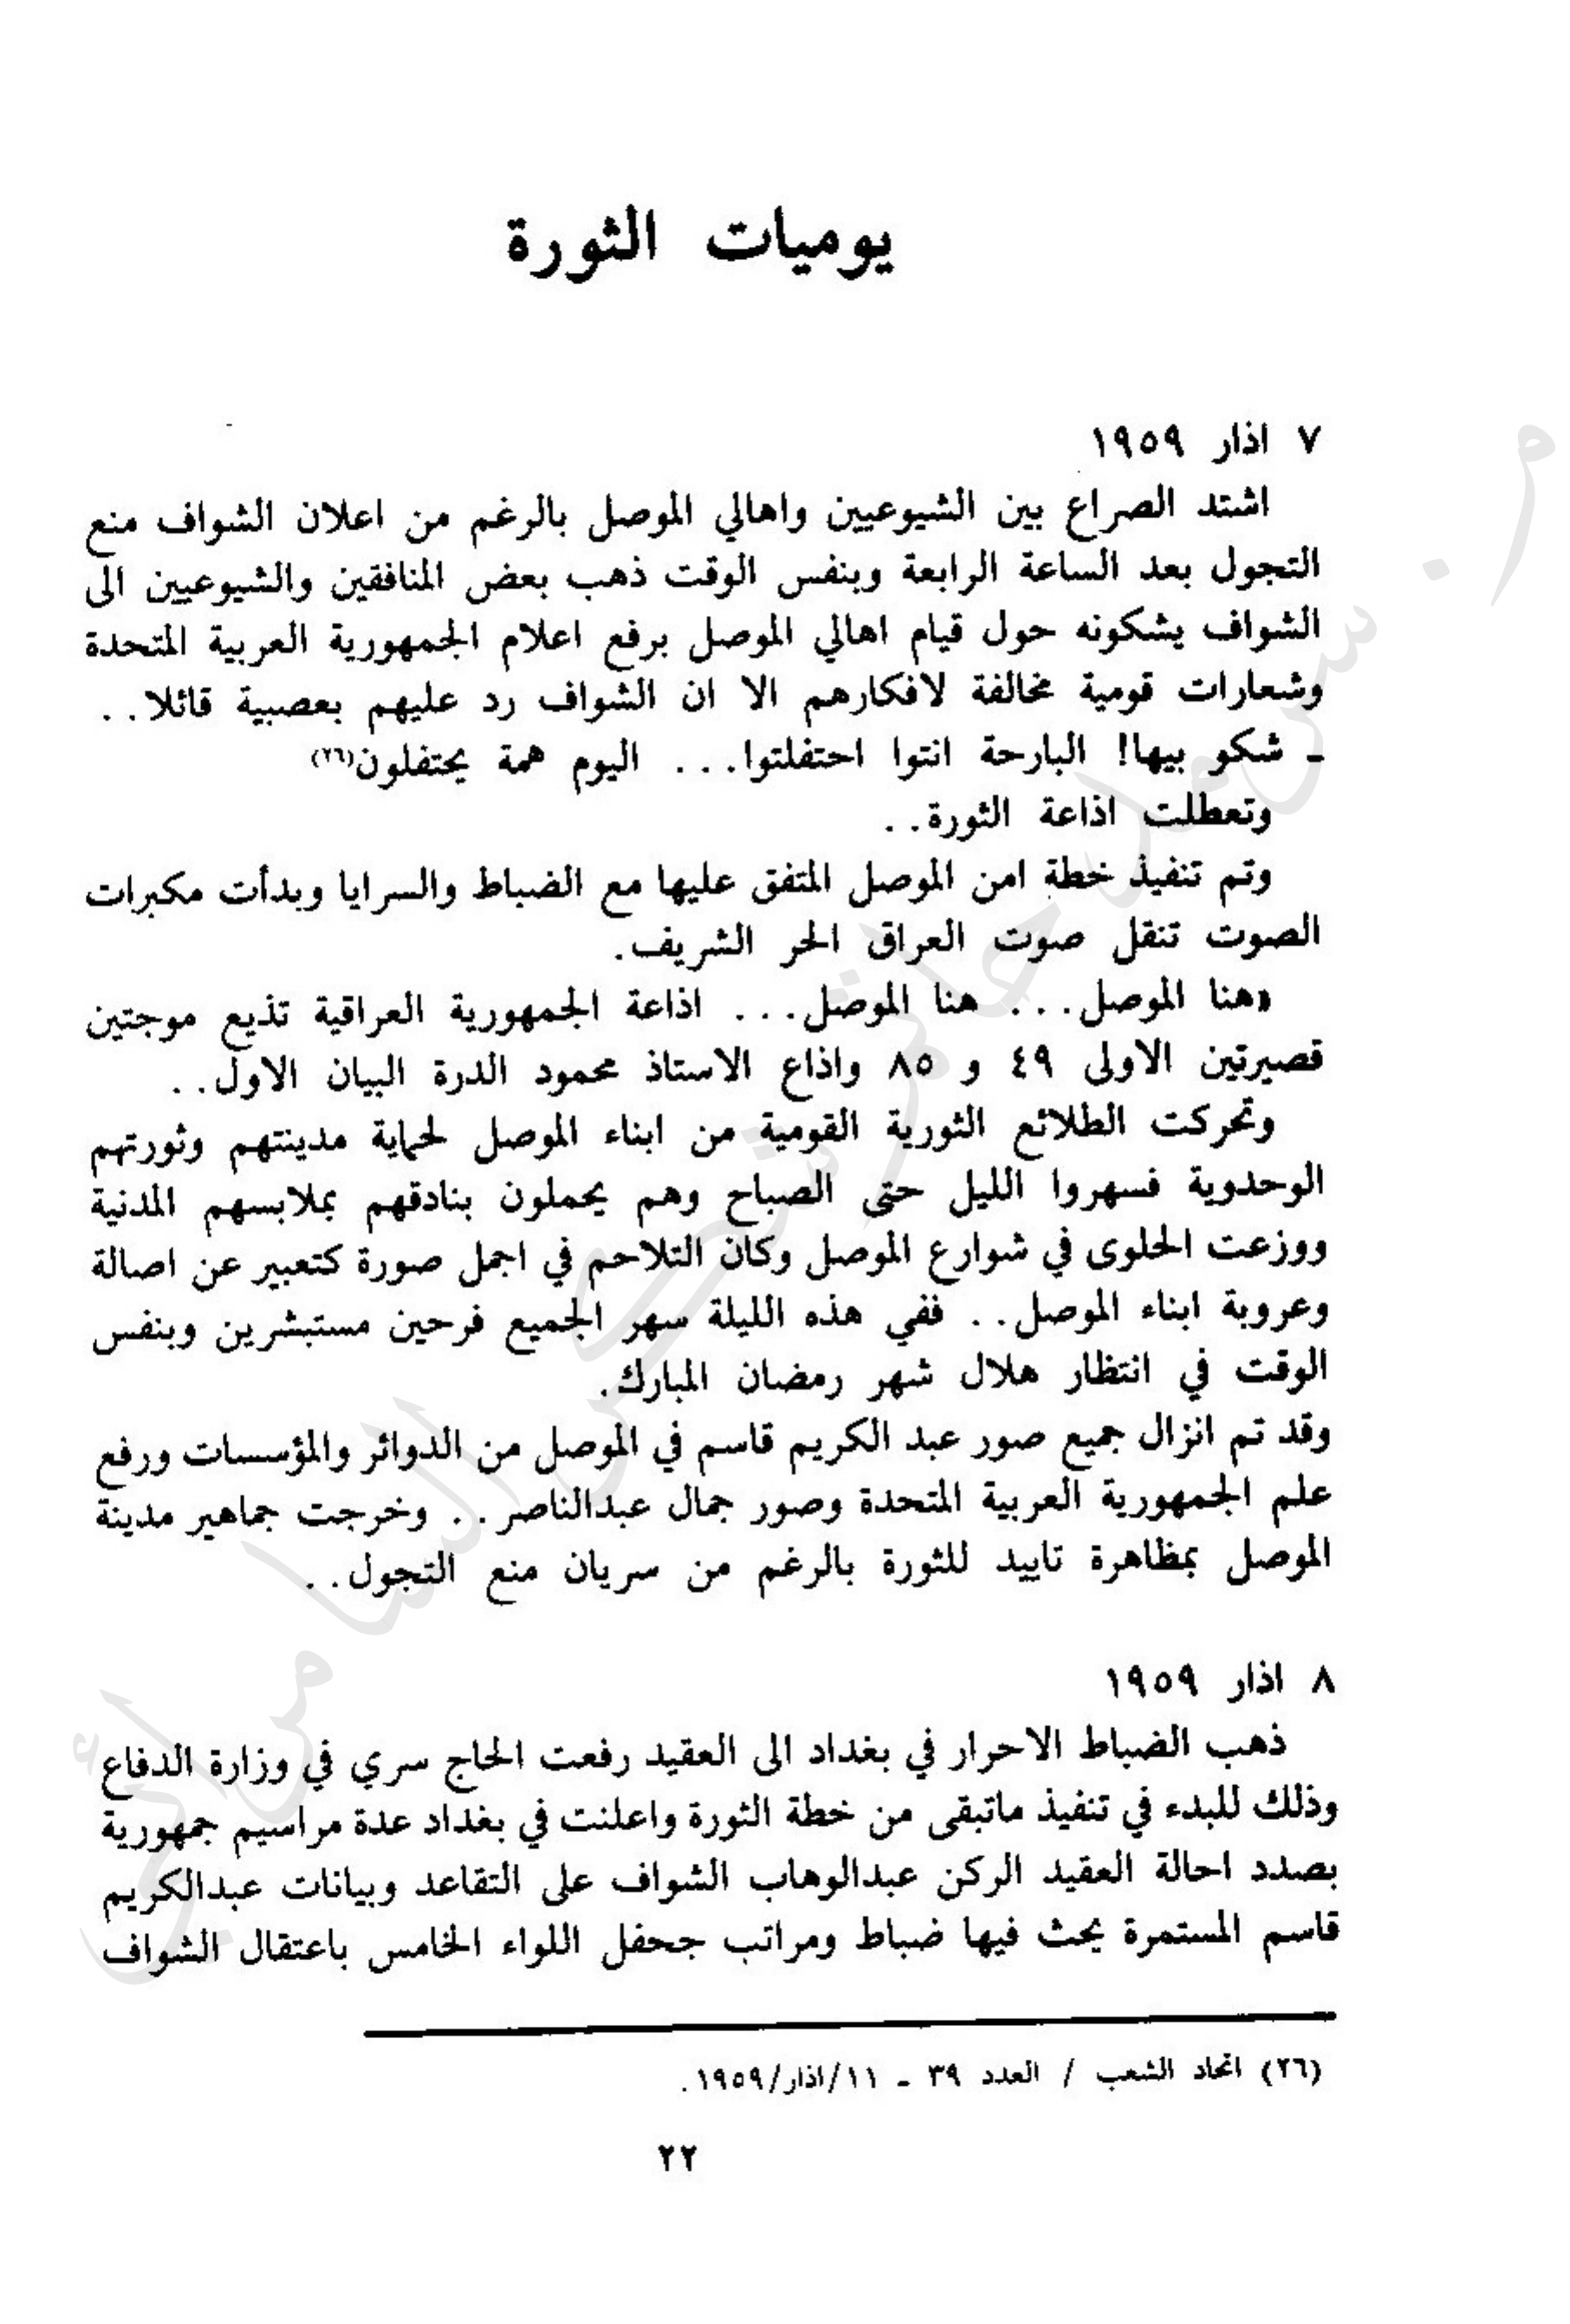 يوميات الثورة
٧ اذار ١٩٥٩
اشتد الصراع بين الشيوعيين واهالي الموصل بالرغم من اعلان الشواف منع
التجول بعد الساعة الرابعة وبنفس الوقت ذهب بعض المنافقين والشيوعيين الى
الشواف يشكونه حول قيام اهالي الموصل برفع اعلام الجمهورية العربية المتحدة
وشعارات قومية مخالفة لافكارهم الا ان الشواف رد عليهم بعصبية قائلا..
ـ شكو بيها! البارحة انتوا احتفلتوا... اليوم همة يحتفلون(٢٦)
وتعطلت اذاعة الثورة..
وتم تنفيذ خطة امن الموصل المتفق عليها مع الضباط والسرايا وبدأت مكبرات
الصوت تنقل صوت العراق الحر الشريف.
«هنا الموصل... هنا الموصل... اذاعة الجمهورية العراقية تذيع موجتين
قصيرتين الاولى ٤٩ و ٨٥ واذاع الاستاذ محمود الدرة البيان الاول..
وتحركت الطلائع الثورية القومية من ابناء الموصل لحماية مدينتهم وثورتهم
الوحدوية فسهروا الليل حتى الصباح وهم يحملون بنادقهم بملابسهم المدنية
ووزعت الحلوى في شوارع الموصل وكان التلاحم في اجمل صورة كتعبير عن اصالة
وعروبة ابناء الموصل.. ففي هذه الليلة سهر الجميع فرحين مستبشرين وبنفس
الوقت في انتظار هلال شهر رمضان المبارك.
وقد تم انزال جميع صور عبد الكريم قاسم في الموصل من الدوائر والمؤسسات ورفع
علم الجمهورية العربية المتحدة وصور جمال عبدالناصر.. وخرجت جماهير مدينة
الموصل بمظاهرة تاييد للثورة بالرغم من سريان منع التجول..
٨ اذار ١٩٥٩
ذهب الضباط الاحرار في بغداد الى العقيد رفعت الحاج سري في وزارة الدفاع
وذلك للبدء في تنفيذ ماتبقى من خطة الثورة واعلنت في بغداد عدة مراسيم جمهورية
بصدد احالة العقيد الركن عبدالوهاب الشواف على التقاعد وبيانات عبدالكريم
قاسم المستمرة يحث فيها ضباط ومراتب جحفل اللواء الخامس باعتقال الشواف
(٢٦) اتحاد الشعب / العدد ٣٩ ـ ١١/اذار/١٩٥٩.
٢٢
م. سرمد حاتم شكر السامرائي